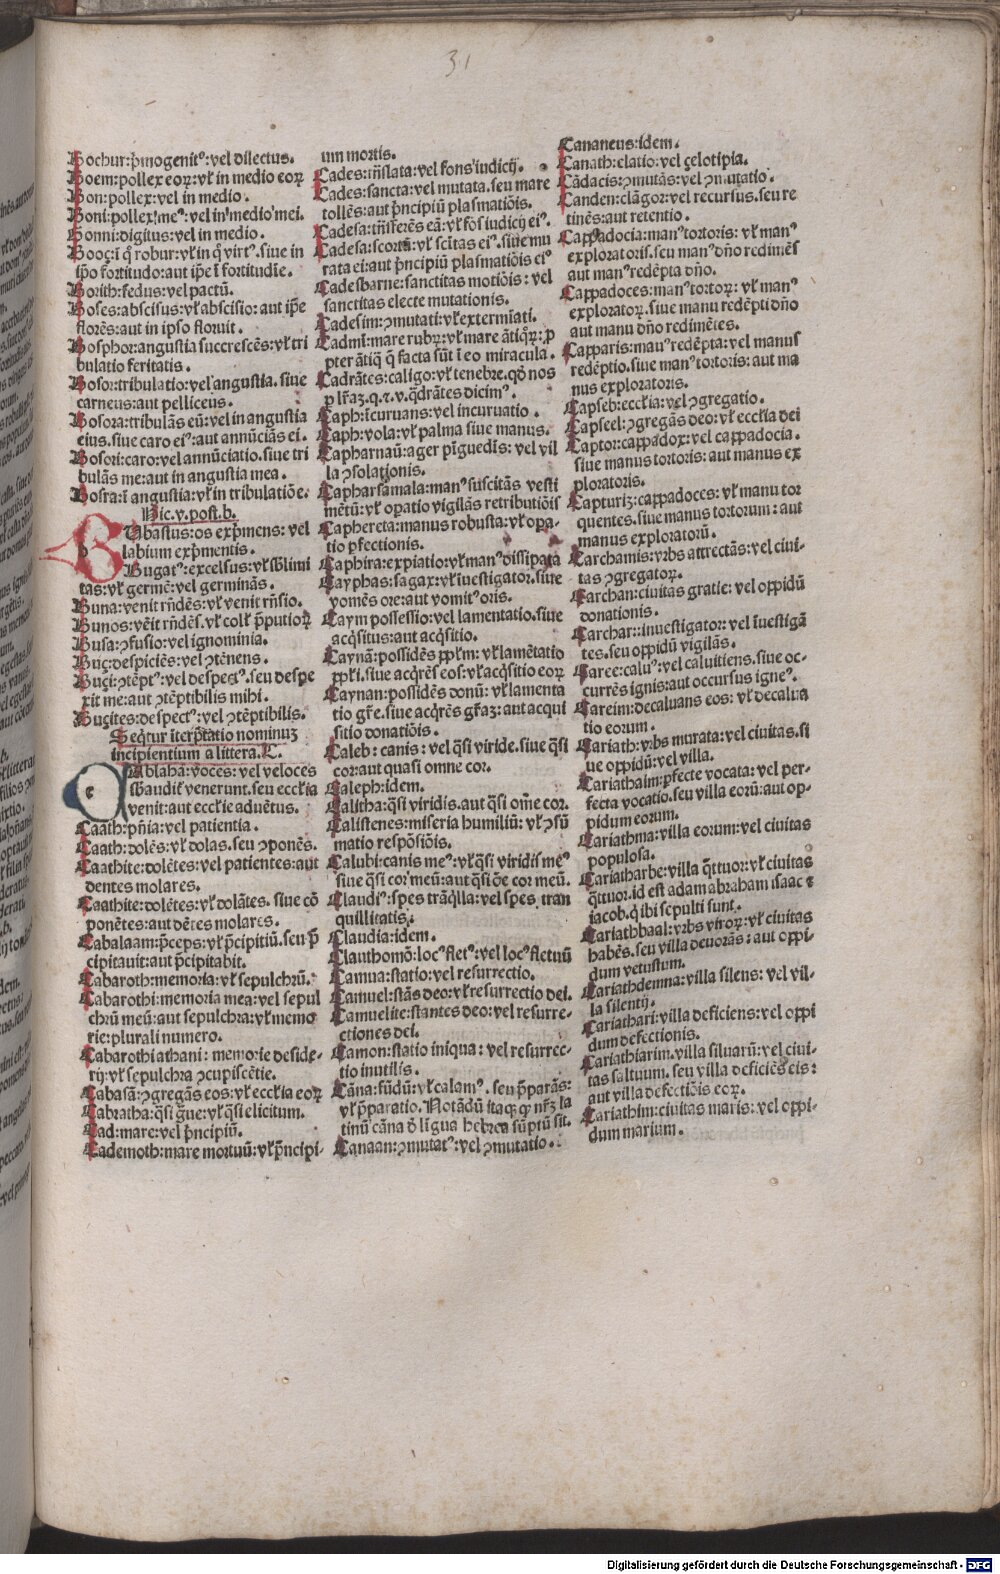 31
Bochur:p̄mogenitꝰ:vel dilectus.
Boem:pollex eoꝝ:vł in medio eoꝝ
Bon:pollex:vel in medio.
Boni:pollex meꝰ:vel in medio mei.
Bonni:digitus:vel in medio.
Booç:ī q̄ robur:vł in q̄ virtꝰ.siue in
ip̄o fortitudo:aut ip̄e ī fortitudīe.
Borith:fedus:vel pactū.
Boses:abscisus:vł abscisio:aut ip̄e
florēs:aut in ipso floruit.
Bosphor:angustia succrescēs:vł tri
bulatio feritatis.
Bosor:tribulatio:vel angustia.siue
carneus:aut pelliceus.
Bosora:tribulās eū:vel in angustia
eius.siue caro eiꝰ:aut annūcians ei.
Bosori:caro:vel annūciatio.siue tri
bulās me:aut in angustia mea.
Bosra:ī angustia:vł in tribulatiōe.
Hic.v.post.b.
BUbastus:os exp̄mens:vel
labium exp̄mentis.
Bugatꝰ:excelsus:vł sb̄limi
tas:vł germē:vel germinās.
Buna:venit rn̄dēs:vł venit rn̄sio.
Bunos:vēit rn̄dēs.vł colł p̄putioꝝ
Busa:ꝯfusio:vel ignominia.
Buç:despiciēs:vel ꝯtēnens.
Buçi:ꝯtēptꝰ:vel despectꝰ.seu despe
xit me:aut ꝯtēptibilis mihi.
Buçites:despectꝰ:vel ꝯtēptibilis.
Seq̄tur īterp̄tatio nominuꝫ
incipientium a littera.C.
CAblaha:voces:vel veloces
sb̄audit̄ venerunt.seu eccłia
venit:aut eccłie aduētus.
Caath:pn̄ia:vel patientia.
Caath:dolēs:vł dolas.seu ꝯponēs.
Caathite:dolētes:vel patientes:aut
dentes molares.
Caathite:dolētes:vł dolātes.siue cō
ponētes:aut dētes molares.
Cabalaam:p̄ceps:vł p̄cipitiū.seu p̄
cipitauit:aut p̄cipitabit.
Cabaroth:memoria:vł sepulchrū.
Cabarothi:memoria mea:vel sepul
chrū meū:aut sepulchra:vł memo
rie:plurali numero.
Cabarothiathani:memorie deside-
rij:vł sepulchra ꝯcupiscētie.
Cabasā:ꝯgregās eos:vł eccłia eoꝝ
Cabratha:q̄si g̈ue:vł q̄si elicitum.
Cad:mare:vel p̄ncipiū.
Cademoth:mare mortuū:vł p̄ncipi-
um mortis.
Cades:trn̄slata:vel fons iudicij.
Cades:sancta:vel mutata.seu mare
tollēs:aut p̄ncipiū plasmatiōis.
Cadesa:trn̄sferēs eā:vł fōs iudicij eiꝰ.
Cadesa:scortū:vł scītas eiꝰ.siue mu
rata ei:aut p̄ncipiū plasmatiōis eiꝰ
Cadesbarne:sanctitas motiōis:vel
sanctitas electe mutationis.
Cadesim:ꝯmutati:vł extermīati.
Cadmī:mare rubꝝ:vł mare ātiq̄ꝝ:ꝓ
pter ātiq̄ q̄ facta sūt ī eo miracula.
Cadrātes:caligo:vł tenebre.qd̄ nos
p lr̄aꝫ.q.⁊.v.q̄drātes dicimꝰ.
Caph:īcuruans:vel incuruatio.
Caph:vola:vł palma siue manus.
Capharnaū:ager pīguedīs:vel vil
la ꝯsolationis.
Capharsamala:manꝰ suscitās vesti
mētū:vł opatio vigilās retributiōis
Caphereta:manus robusta:vł opa-
tio pfectionis.
Caphira:expiatio:vł manꝰ dissipata
Cayphas:sagax:vł īuestigator.siue
vomēs ore:aut vomitꝰ oris.
Caym possessio:vel lamentatio.siue
acq̄situs:aut acq̄sitio.
Caynā:possidēs ppłm:vł lamētatio
ppłi.siue acq̄rēs eos:vł acq̄sitio eoꝝ
Caynan:possidēs donū:vł lamenta
tio gr̄e.siue acq̄rēs gr̄aꝫ:aut acqui
sitio donatiōis.
Caleb:canis:vel q̄si viride.siue q̄si
cor:aut quasi omne cor.
Caleph:idem.
Calitha:q̄si viridis.aut q̄si om̄e cor.
Calistenes:miseria humiliū:vł ꝯsū
matio respōsiōis.
Calubi:canis meꝰ:vł q̄si viridis meꝰ
siue q̄si cor meū:aut q̄si ōe cor meū.
Claudiꝰ:spes trāq̄lla:vel spes tran
quillitatis.
Claudia:idem.
Clauthomō:locꝰ fletꝰ:vel locꝰ fletuū
Camua:statio:vel resurrectio.
Camuel:stās deo:vł resurrectio dei.
Camuelite:stantes deo:vel resurre-
ctiones dei.
Camon:statio iniqua:vel resurrec-
tio inutilis.
Cāna:fūdū:vł calamꝰ.seu p̄parās:
vł p̄paratio.Notādū itaqꝫ qꝫ nr̄ꝫ la
tinū cāna d̄ līgua hebrea sūptū sit.
Canaan:ꝯmutatꝰ:vel ꝯmutatio.
Cananeus:idem.
Canath:elatio:vel çelotipia.
Cādacis:ꝯmutās:vel ꝯmutatio.
Canden:clāgor:vel recursus.seu re
tinēs:aut retentio.
Cappadocia:manꝰ tortoris:vł manꝰ
exploratoris.seu manꝰ dn̄o redimēs
aut manꝰ redēpta dn̄o.
Cappadoces:manꝰ tortoꝝ:vł manꝰ
exploratoꝝ.siue manu redēpti dn̄o
aut manu dn̄o redimētes.
Capparis:manꝰ redēpta:vel manus
redēptio.siue manꝰ tortoris:aut ma
nus exploratoris.
Capseb:eccłia:vel ꝯgregatio.
Capseel:ꝯgregās deo:vł eccłia dei
Captor:cappadox:vel cappadocia.
siue manus tortoris:aut manus ex
ploratoris.
Capturiꝫ:cappadoces:vł manu tor
quentes.siue manus tortorum:aut
manus exploratorū.
Carchamis:vrbs attrectās:vel ciui-
tas ꝯgregatoꝝ.
Carchan:ciuitas gratie:vel oppidū
donationis.
Carchar:inuestigator:vel īuestigā
tes.seu oppidū vigilās.
Caree:caluꝰ:vel caluitiens.siue oc-
currēs ignis:aut occursus igneꝰ.
Careim:decaluans eos:vł decalua
tio eorum.
Cariath:vrbs murata:vel ciuitas.si
ue oppidū:vel villa.
Cariathaim:pfecte vocata:vel per-
fecta vocatio.seu villa eorū:aut op-
pidum eorum.
Cariathma:villa eorum:vel ciuitas
populosa.
Cariatharbe:villa q̄ttuor:vł ciuitas
q̄ttuor.id est adam abraham isaac ⁊
iacob.q̄ ibi sepulti sunt.
Cariathbaal:vrbs viroꝝ:vł ciuitas
habēs.seu villa deuorās:aut oppi-
dum vetustum.
Cariathdenna:villa silens:vel vil-
la silentij.
Cariathari:villa deficiens:vel oppi
dum defectionis.
Cariathiarim.villa siluarū:vel ciui-
tas saltuum.seu villa deficiēs eis:
aut villa defectiōis eoꝝ.
Cariathim:ciuitas maris:vel oppi-
dum marium.
Digitalisierung gefördert durch die Deutsche Forschungsgemeinschaft - DFG